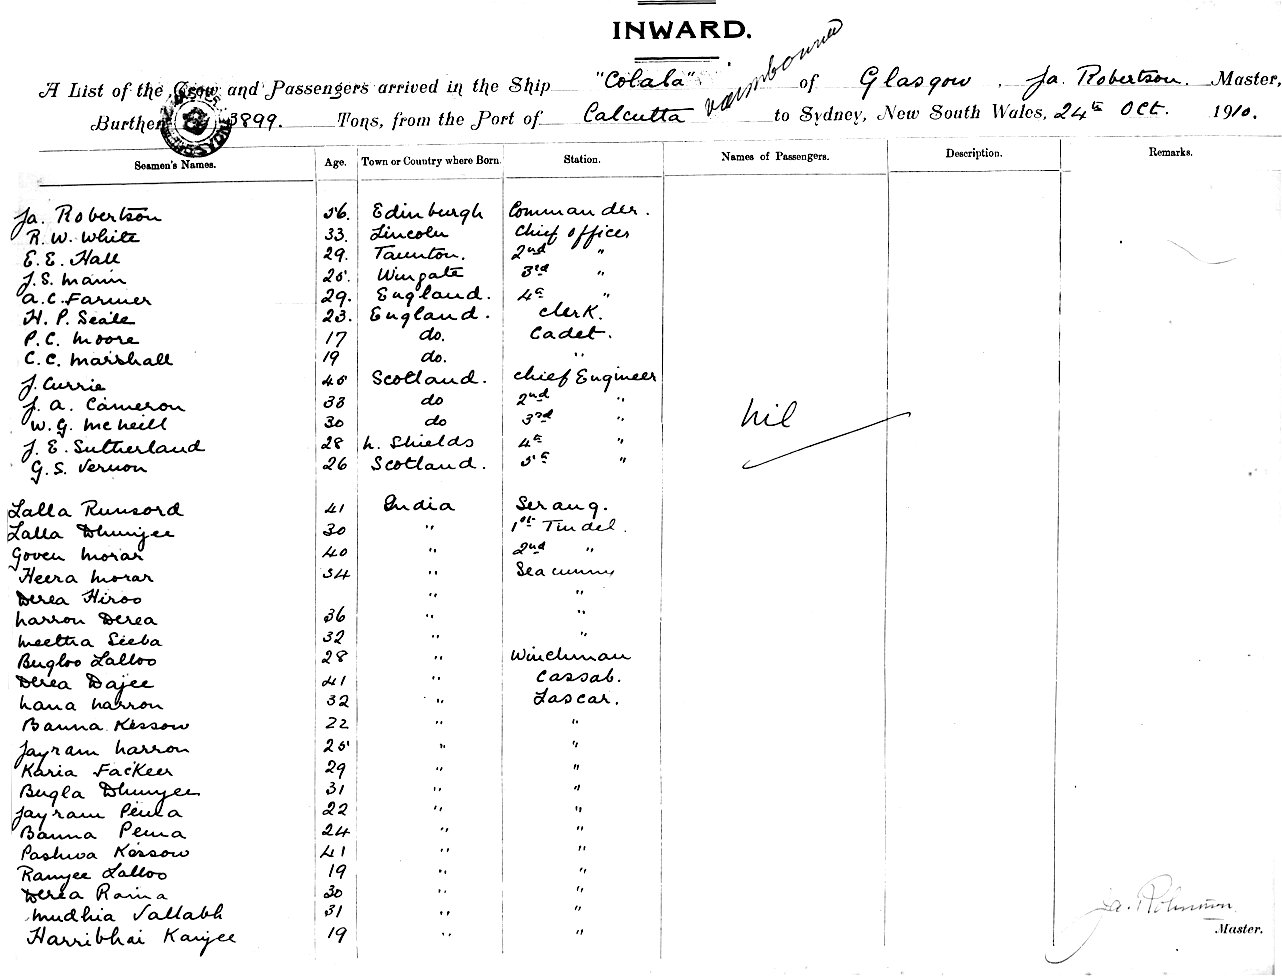 INWARD.
A List of the Crew and Passengers arrived in the Ship "Colaba" of Glasgow, Ja. Robertson. Master,
Burthen 3899. Tons, from the Port of Calcutta to Sydney, New South Wales, 24th Oct. 1910.
Seamen's Names. Age. Town or Country where Born. Station. Names of Passengers. Description. Remarks.
Ja. Robertson 56. Edinburgh Commander.
R. W. White 33. Lincoln Chief Officer
E. E. Hall 29. Taunton. 2nd "
J. S. Mann 25. Wingate 3rd "
A. C. Farmer 29. England. 4th "
H. P. Seale 23. England. Clerk.
P. C. Moore 17 do. Cadet.
C. C. Marshall 19 do. "
J. Currie 45 Scotland. Chief Engineer
J. A. Cameron 33 do 2nd "
W. G. McNeill 30 do 3rd " Nil
J. E. Sutherland 28 N. Shields 4th "
G. S. Vernon 26 Scotland. 5th "
Lalla Runsord 41 India Serang.
Lalla Dhunjee 30 " 1st Tindel.
Goven Morar 40 " 2nd "
Heera Morar 34 " Seacunny
Derea Hiroo " "
Narron Derea 36 " "
Meetha Seeba 32 " "
Bugloo Lalloo 28 " Winchman
Derea Dajee 41 " Cassab.
Nana Narron 32 " Lascar.
Banna Kessow 22 " "
Jayram Narron 25 " "
Karia Fackeer 29 " "
Bugla Dhunjee 31 " "
Jayram Pema 22 " "
Banna Pema 24 " "
Pashwa Kessow 41 " "
Ramjee Lalloo 19 " "
Derea Rama 30 " "
Mudhia Vallabh 31 " "
Harribhai Kanjee 19 " "
Ja. Robertson
Master.